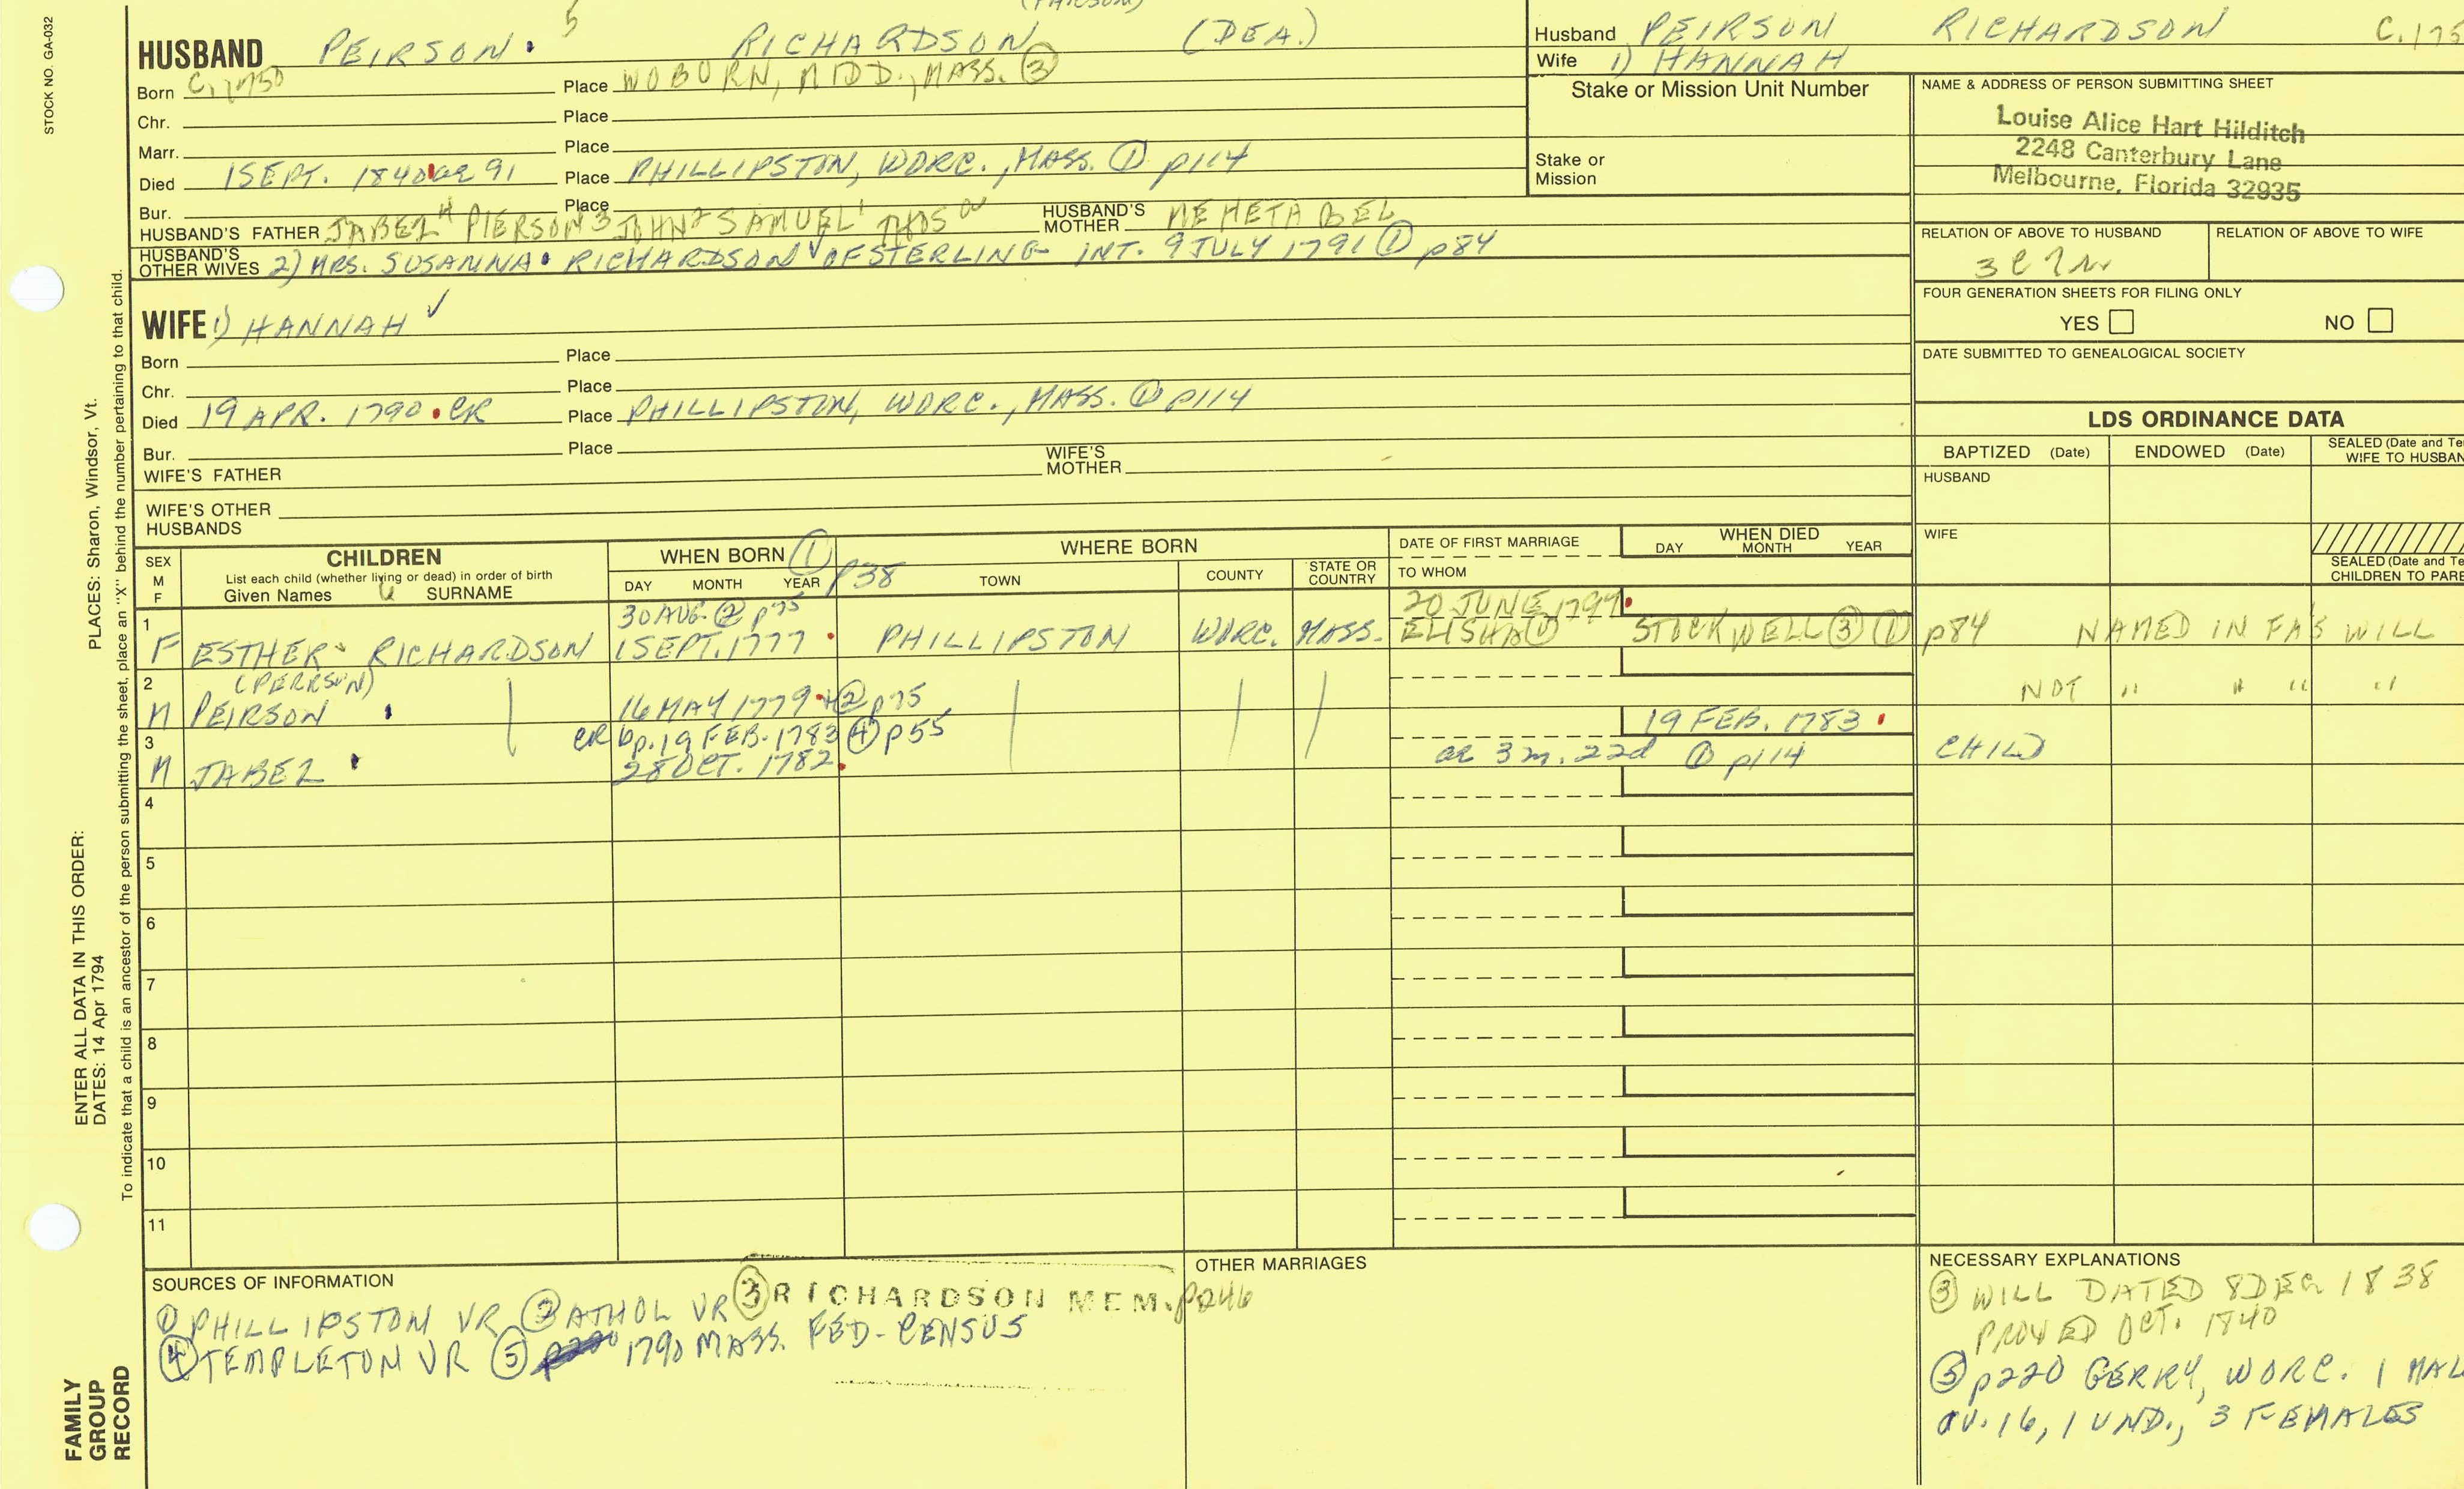 STOCK NO. GA-032
HUSBAND PEIRSON 5 RICHARDSON (DEA.)
Born C.1750 Place WOBURN, MIDD., MASS. ③
Chr. Place
Marr. Place
Died 1 SEPT. 1840 ae 91 Place PHILLIPSTON, WORC., MASS. ① p114
Bur. Place
HUSBAND'S FATHER JABEZ 4 PIERSON 3 JOHN 2 SAMUEL 1 THOS HUSBAND'S MOTHER MEHETABEL
HUSBAND'S OTHER WIVES 2) MRS. SUSANNA RICHARDSON OF STERLING INT. 9 JULY 1791 ① p84
WIFE 1) HANNAH ✓
Born Place
Chr. Place
Died 19 APR. 1790 CR Place PHILLIPSTON, WORC., MASS. ① p114
Bur. Place
WIFE'S FATHER WIFE'S MOTHER
WIFE'S OTHER HUSBANDS
Husband PEIRSON RICHARDSON C.175
Wife 1) HANNAH
Stake or Mission Unit Number
Stake or Mission
NAME & ADDRESS OF PERSON SUBMITTING SHEET
Louise Alice Hart Hilditch
2248 Canterbury Lane
Melbourne, Florida 32935
RELATION OF ABOVE TO HUSBAND RELATION OF ABOVE TO WIFE
FOUR GENERATION SHEETS FOR FILING ONLY
YES NO
DATE SUBMITTED TO GENEALOGICAL SOCIETY
LDS ORDINANCE DATA
BAPTIZED (Date) ENDOWED (Date) SEALED (Date and Te
WIFE TO HUSBAN
HUSBAND
WIFE
SEALED (Date and Te
CHILDREN TO PARE
SEX M F
CHILDREN
List each child (whether living or dead) in order of birth
Given Names SURNAME
WHEN BORN ① p38
DAY MONTH YEAR
WHERE BORN
TOWN COUNTY STATE OR COUNTRY
DATE OF FIRST MARRIAGE
TO WHOM
WHEN DIED
DAY MONTH YEAR
1 30 AUG. ② p75 20 JUNE 1797
F ESTHER RICHARDSON 1 SEPT. 1777 PHILLIPSTON WORC. MASS. ELISHA ① STOCKWELL ③ ① p84 NAMED IN FA'S WILL
2 (PERRSON)
M PEIRSON 16 MAY 1779 + ② p75 NOT " " " "
3 CR bp. 19 FEB. 1783 ④ p55 19 FEB. 1783
M JABEZ 28 OCT. 1782 ae 3 m. 22d ① p114 CHILD
4
5
6
7
8
9
10
11
SOURCES OF INFORMATION
① PHILLIPSTON VR ② ATHOL VR ③ RICHARDSON MEM. p246
④ TEMPLETON VR ⑤ 1790 MASS. FED-CENSUS
OTHER MARRIAGES
NECESSARY EXPLANATIONS
③ WILL DATED 8 DEC 1838
PROVED OCT. 1840
⑤ p220 GERRY, WORC. 1 MAL
ov. 16, 1 UND., 3 FEMALES
PLACES: Sharon, Windsor, Vt.
ENTER ALL DATA IN THIS ORDER:
DATES: 14 Apr 1794
To indicate that a child is an ancestor of the person submitting the sheet, place an "X" behind the number pertaining to that child.
FAMILY
GROUP
RECORD